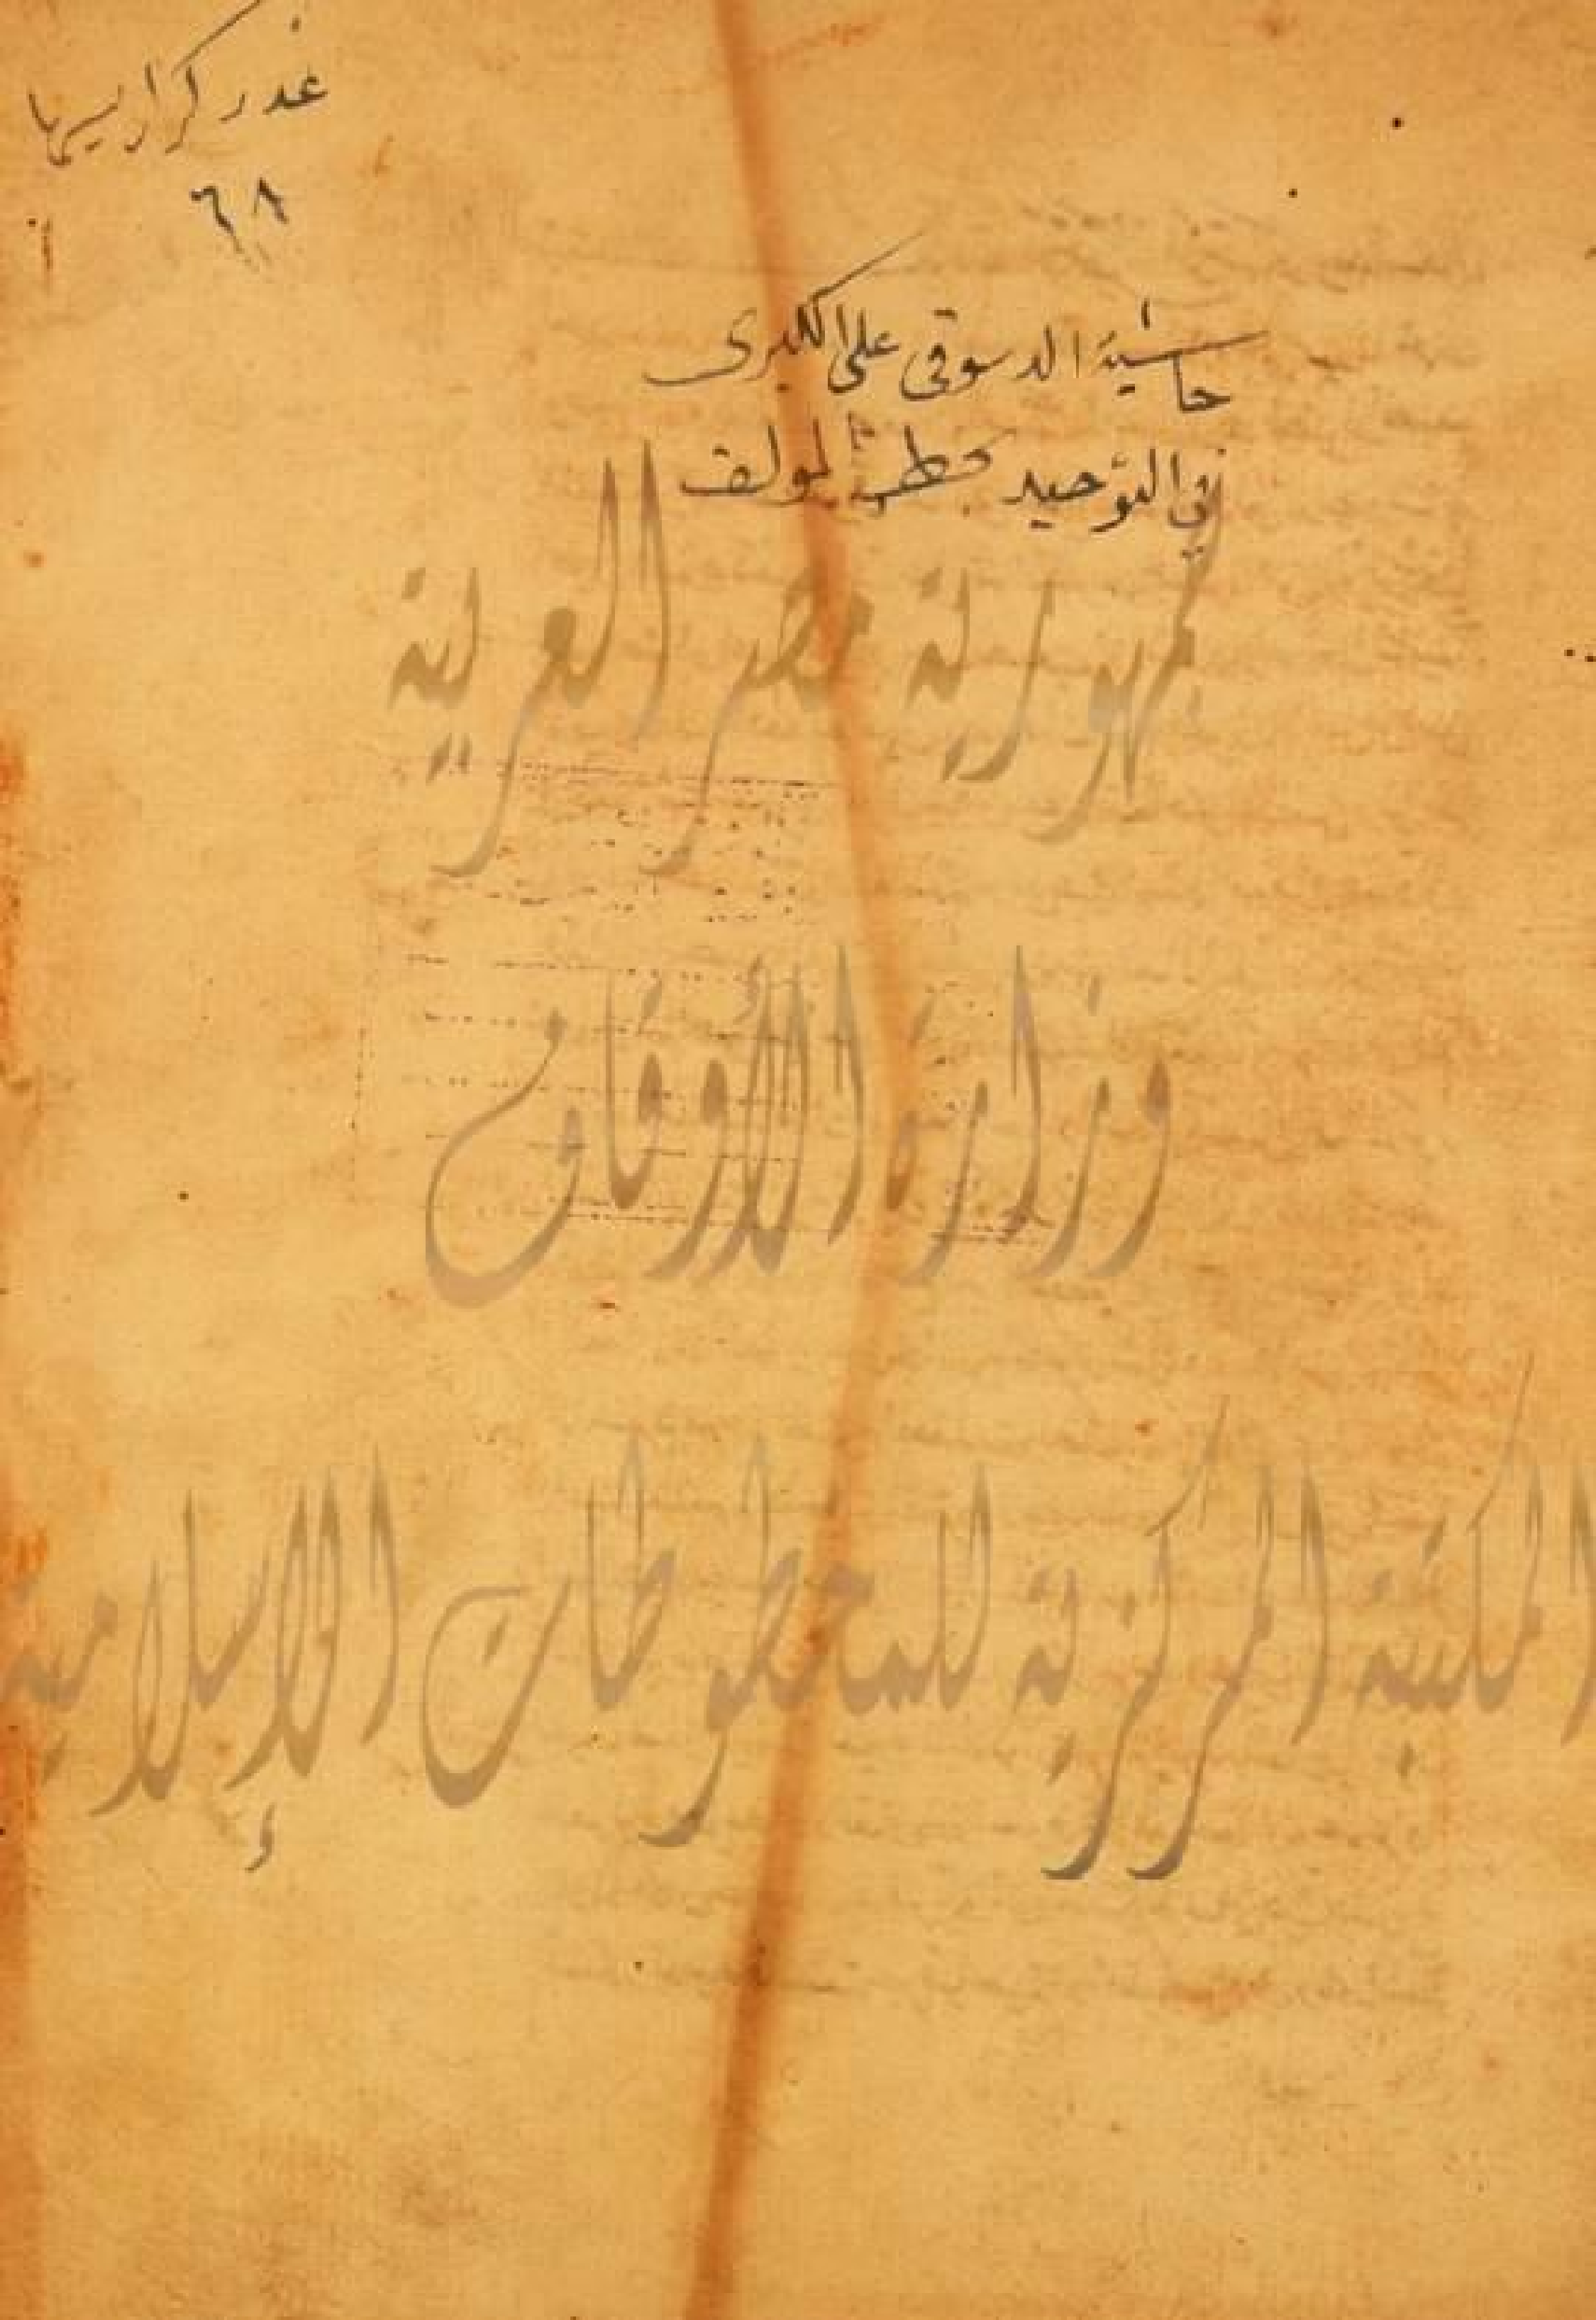 عدد كراريسها
٦٨
حاشية الدسوقي على الكبرى
في التوحيد بخط المولف
جمهورية مصر العربية
وزارة الأوقاف
المكتبة المركزية للمخطوطات الإسلامية